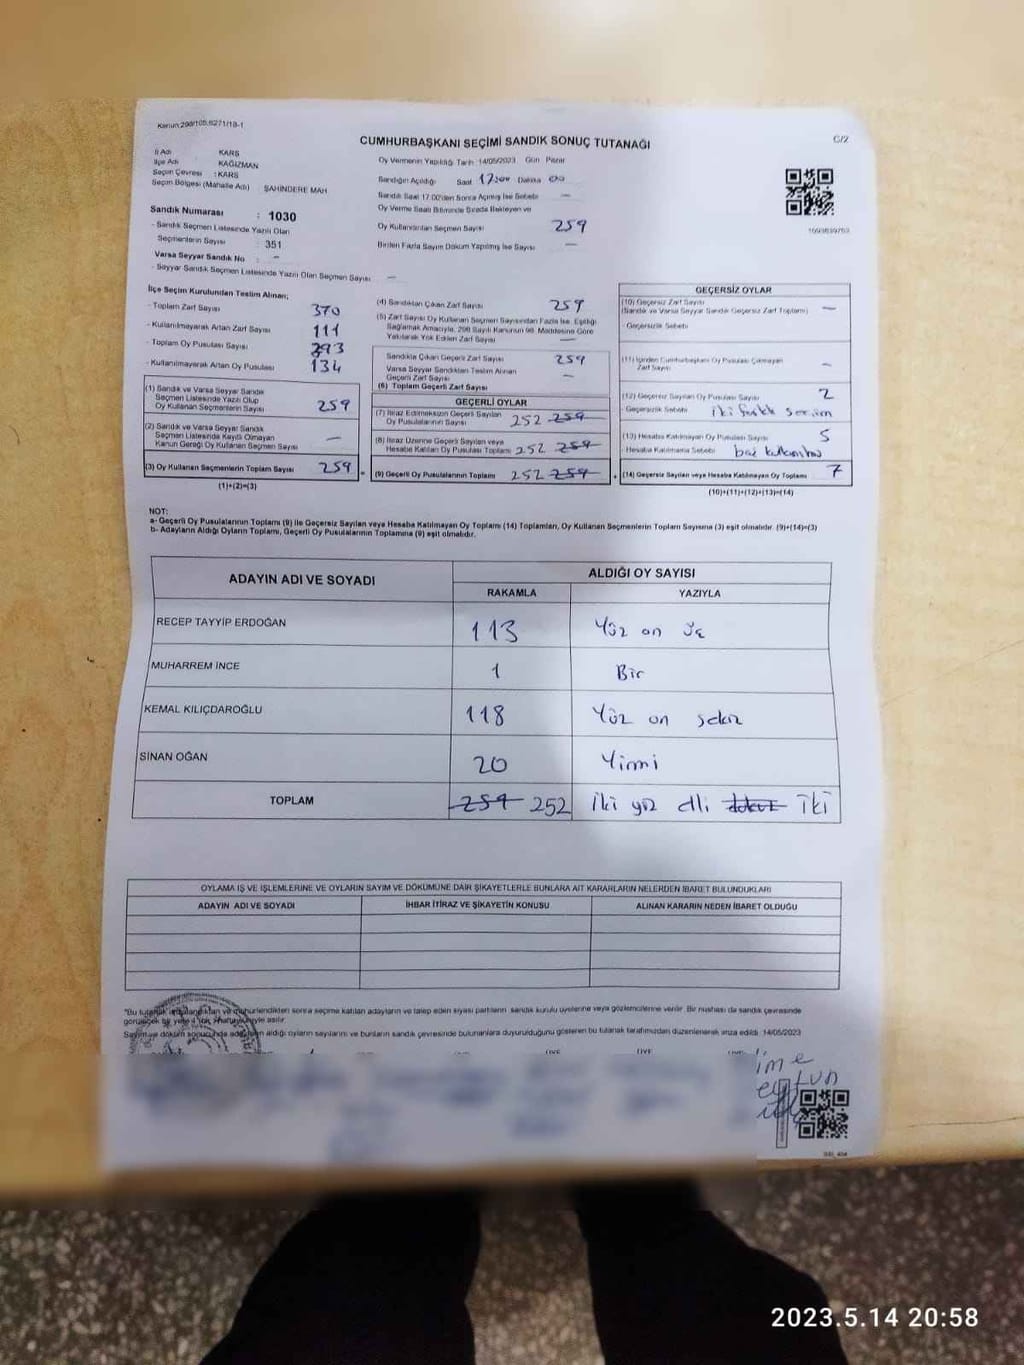 Kanun:298/105,6271/18-1
CUMHURBAŞKANI SEÇİMİ SANDIK SONUÇ TUTANAĞI
C/2
İl Adı : KARS
İlçe Adı : KAĞIZMAN
Seçim Çevresi : KARS
Seçim Bölgesi (Mahalle Adı) : ŞAHİNDERE MAH
Sandık Numarası : 1030
- Sandık Seçmen Listesinde Yazılı Olan
Seçmenlerin Sayısı : 351
Varsa Seyyar Sandık No : -
- Seyyar Sandık Seçmen Listesinde Yazılı Olan Seçmen Sayısı -
Oy Vermenin Yapıldığı Tarih 14/05/2023 Gün Pazar
Sandığın Açıldığı Saat 17:00 Dakika 00
Sandık Saat 17.00'den Sonra Açılmış İse Sebebi -
Oy Verme Saati Bitiminde Sırada Bekleyen ve
Oy Kullandırılan Seçmen Sayısı 259
Birden Fazla Sayım Döküm Yapılmış İse Sayısı -
İlçe Seçim Kurulundan Teslim Alınan;
- Toplam Zarf Sayısı 370
- Kullanılmayarak Artan Zarf Sayısı 111
- Toplam Oy Pusulası Sayısı 393
- Kullanılmayarak Artan Oy Pusulası 134
(1) Sandık ve Varsa Seyyar Sandık
Seçmen Listesinde Yazılı Olup
Oy Kullanan Seçmenlerin Sayısı 259
(2) Sandık ve Varsa Seyyar Sandık
Seçmen Listesinde Kaydı Olmayan
Kanun Gereği Oy Kullanan Seçmen Sayısı -
(3) Oy Kullanan Seçmenlerin Toplam Sayısı 259
(1)+(2)=(3)
(4) Sandıktan Çıkan Zarf Sayısı 259
(5) Zarf Sayısı Oy Kullanan Seçmen Sayısından Fazla İse, Eşitliği
Sağlamak Amacıyla, 298 Sayılı Kanunun 98. Maddesine Göre
Yakılarak Yok Edilen Zarf Sayısı -
Sandıkta Çıkan Geçerli Zarf Sayısı 259
Varsa Seyyar Sandıktan Teslim Alınan
Geçerli Zarf Sayısı -
(6) Toplam Geçerli Zarf Sayısı
GEÇERLİ OYLAR
(7) İtiraz Edilmeksizin Geçerli Sayılan
Oy Pusulalarının Sayısı 252 259
(8) İtiraz Üzerine Geçerli Sayılan veya
Hesaba Katılan Oy Pusulası Toplamı 252 259
(9) Geçerli Oy Pusulalarının Toplamı 252 259
GEÇERSİZ OYLAR
(10) Geçersiz Zarf Sayısı
(Sandık ve Varsa Seyyar Sandık Geçersiz Zarf Toplamı) -
- Geçersizlik Sebebi
(11) İçinden Cumhurbaşkanı Oy Pusulası Çıkmayan
Zarf Sayısı -
(12) Geçersiz Sayılan Oy Pusulası Sayısı 2
- Geçersizlik Sebebi iki farklı seçim
(13) Hesaba Katılmayan Oy Pusulası Sayısı 5
- Hesaba Katılmama Sebebi boş
(14) Geçersiz Sayılan veya Hesaba Katılmayan Oy Toplamı 7
(10)+(11)+(12)+(13)=(14)
NOT:
a- Geçerli Oy Pusulalarının Toplamı (9) ile Geçersiz Sayılan veya Hesaba Katılmayan Oy Toplamı (14) Toplamları, Oy Kullanan Seçmenlerin Toplam Sayısına (3) eşit olmalıdır. (9)+(14)=(3)
b- Adayların Aldığı Oyların Toplamı, Geçerli Oy Pusulalarının Toplamına (9) eşit olmalıdır.
ADAYIN ADI VE SOYADI
ALDIĞI OY SAYISI
RAKAMLA YAZIYLA
RECEP TAYYİP ERDOĞAN 113 Yüz on üç
MUHARREM İNCE 1 Bir
KEMAL KILIÇDAROĞLU 118 Yüz on sekiz
SİNAN OĞAN 20 Yirmi
TOPLAM 259 252 iki yüz elli dokuz iki
OYLAMA İŞ VE İŞLEMLERİNE VE OYLARIN SAYIM VE DÖKÜMÜNE DAİR ŞİKAYETLERLE BUNLARA AİT KARARLARIN NELERDEN İBARET BULUNDUKLARI
ADAYIN ADI VE SOYADI İHBAR İTİRAZ VE ŞİKAYETİN KONUSU ALINAN KARARIN NEDEN İBARET OLDUĞU
"Bu tutanak imzalandıktan ve mühürlendikten sonra seçime katılan adayların ve talep eden siyasi partilerin sandık kurulu üyelerine veya gözlemcilerine verilir. Bir nüshası da sandık çevresinde
görülecek bir yere
aldığı oyların sayılarını ve bunların sandık çevresinde bulunanlara duyurulduğunu gösteren bu tutanak tarafımızdan düzenlenerek imza edildi. 14/05/2023
2023.5.14 20:58